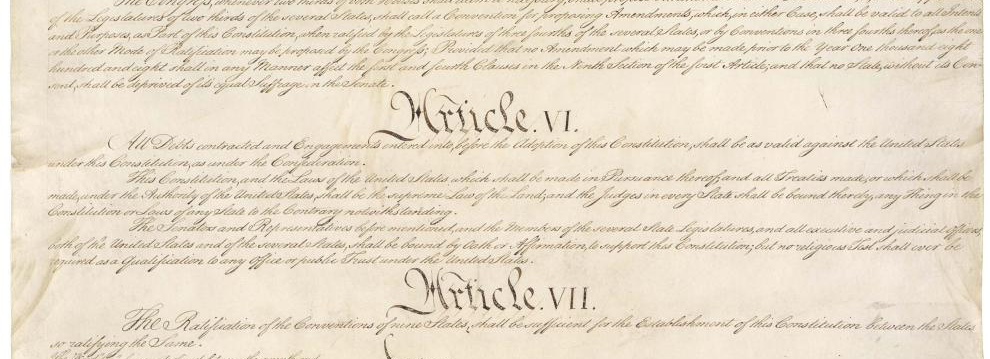 The Congress, whenever two thirds of both Houses shall deem it necessary, shall propose
of the Legislatures of two thirds of the several States, shall call a Convention for proposing Amendments, which, in either Case, shall be valid to all Intents
and Purposes, as Part of this Constitution, when ratified by the Legislatures of three fourths of the several States, or by Conventions in three fourths thereof, as the one
or the other Mode of Ratification may be proposed by the Congress; Provided that no Amendment which may be made prior to the Year One thousand eight
hundred and eight shall in any Manner affect the first and fourth Clauses in the Ninth Section of the first Article; and that no State, without its Con-
sent, shall be deprived of its equal Suffrage in the Senate.
Article. VI.
All Debts contracted and Engagements entered into, before the Adoption of this Constitution, shall be as valid against the United States
under this Constitution, as under the Confederation.
This Constitution, and the Laws of the United States which shall be made in Pursuance thereof; and all Treaties made, or which shall be
made, under the Authority of the United States, shall be the supreme Law of the Land; and the Judges in every State shall be bound thereby, any Thing in the
Constitution or Laws of any State to the Contrary notwithstanding.
The Senators and Representatives before mentioned, and the Members of the several State Legislatures, and all executive and judicial Officers,
both of the United States and of the several States, shall be bound by Oath or Affirmation, to support this Constitution; but no religious Test shall ever be
required as a Qualification to any Office or public Trust under the United States.
Article. VII.
The Ratification of the Conventions of nine States, shall be sufficient for the Establishment of this Constitution between the States
so ratifying the Same.